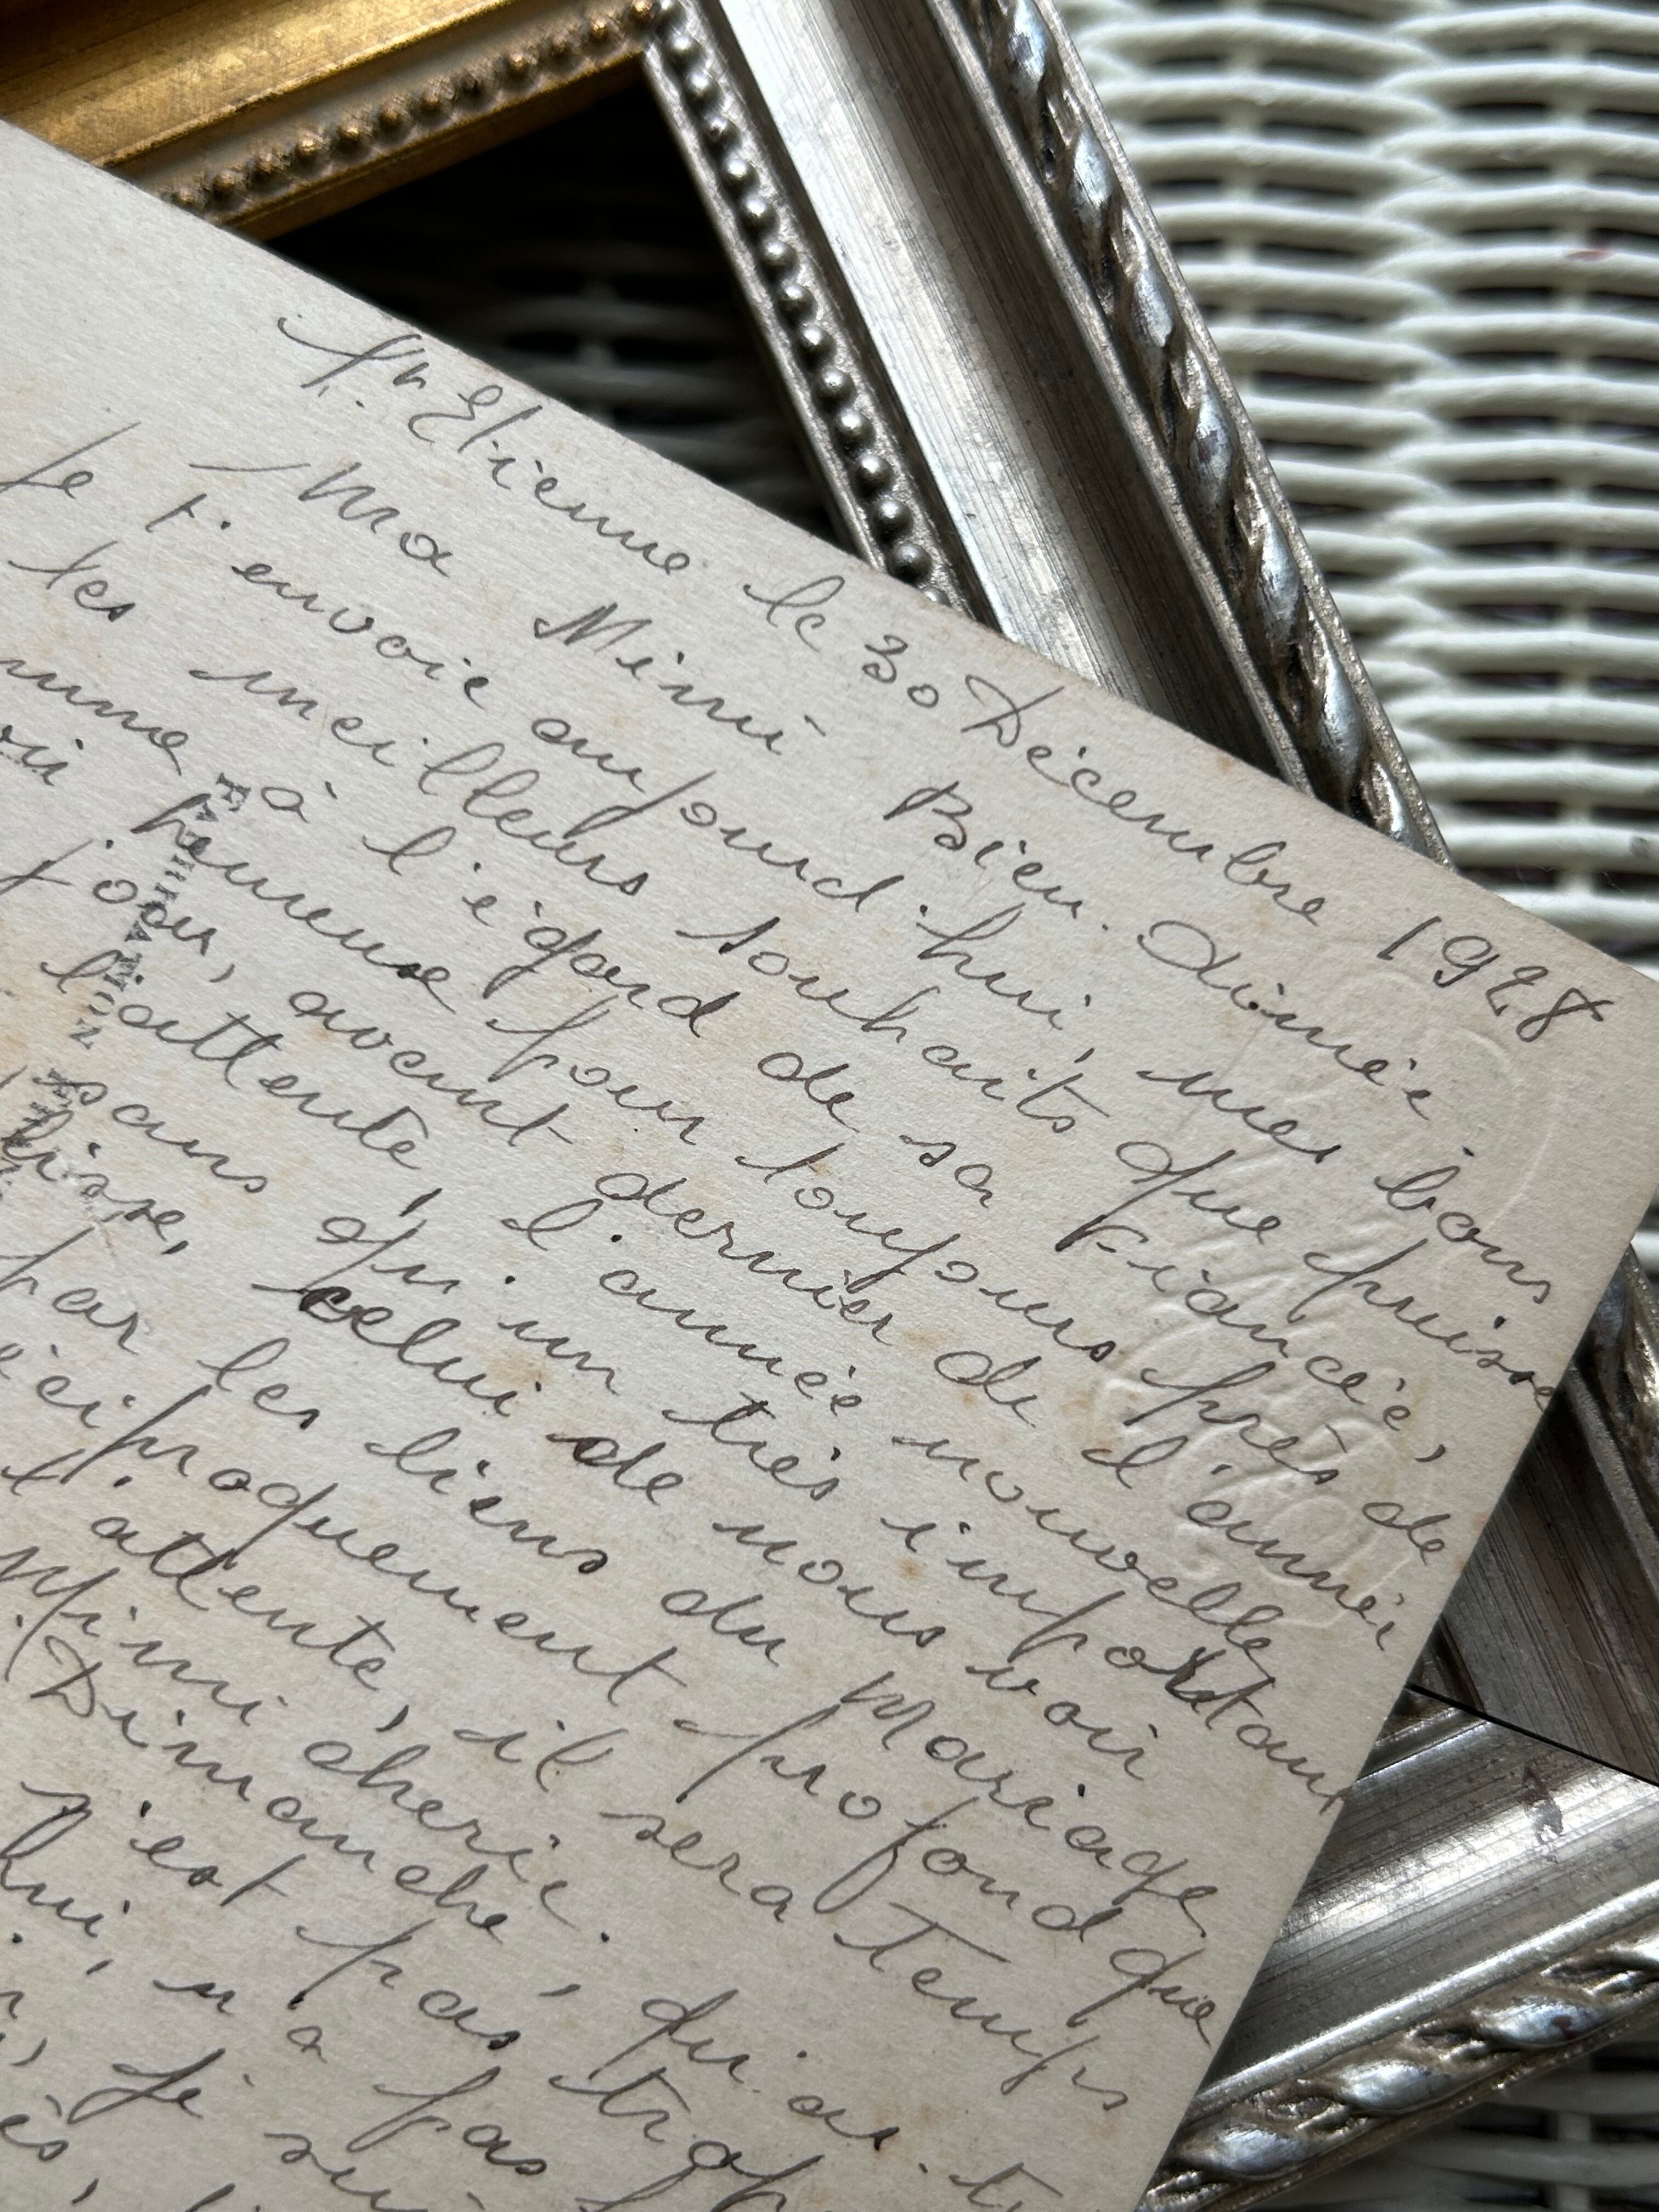 St. Etienne le 30 Décembre 1928
Ma Mimi Bien. Aimée.
Je t'envoie aujourd'hui, mes bons
les meilleurs souhaits que puisse
à l'égard de sa Fiancée,
heureuse pour toujours près de
jour, avant dernier de l'année
l'attente, l'année nouvelle
sans qu'un très important
celui de nous voir
par les liens du Mariage
réciproquement profond que
l'attente, il sera temps
Mimi cherie.
Dimanche, qu'as-tu
n'est pas trop
hui, n'a pas